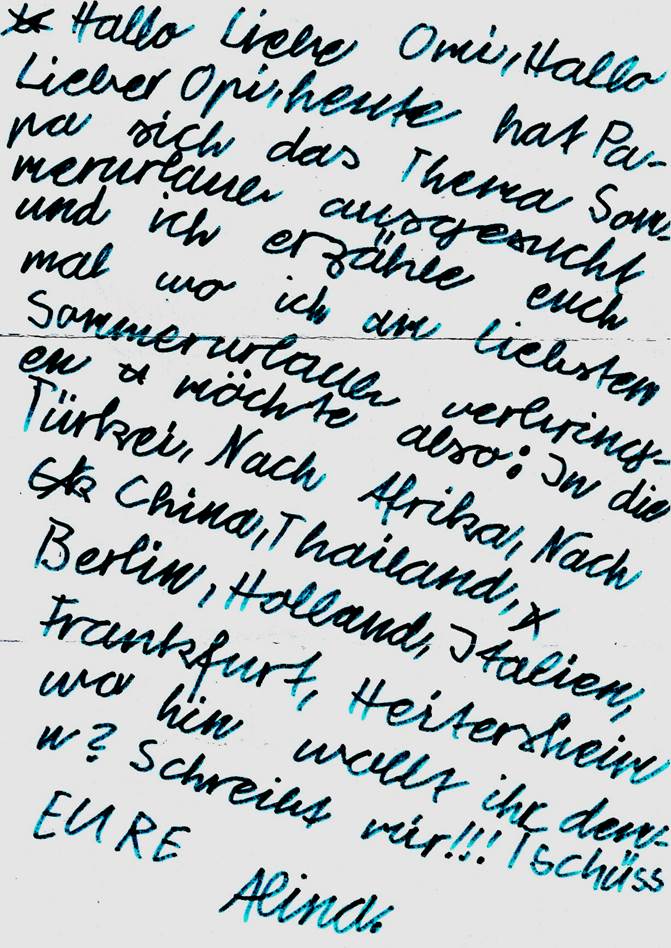 Hallo Liebe Omi, Hallo
Lieber Opi, heute hat Pa-
pa sich das Thema Som
merurlaub ausgesucht
und ich erzähle euch
mal wo ich am liebsten
Sommerurlaub verbring-
en möchte also: In die
Türkei, Nach Afrika, Nach
China, Thailand,
Berlin, Holland, Italien,
Frankfurt, Heitersheim
wo hin wollt ihr den-
n? Schreibt mir!!! Tschüss
EURE
Alina.